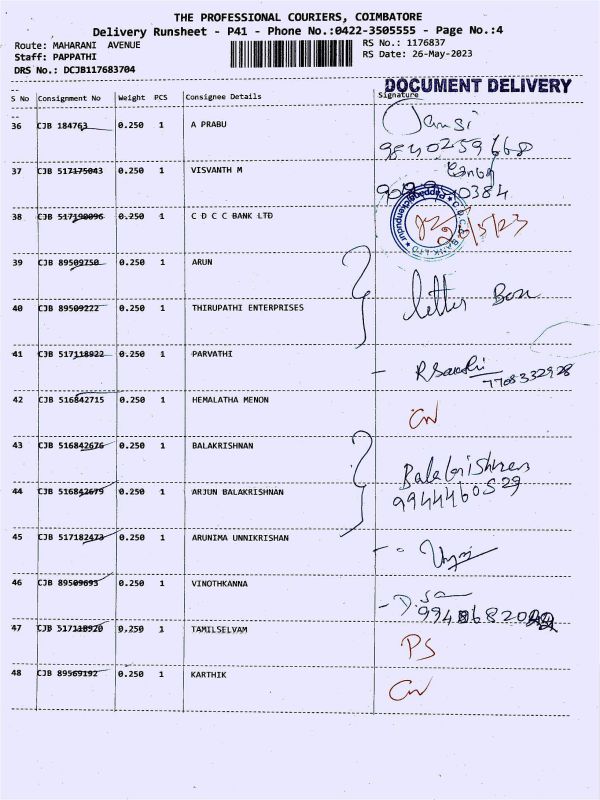 THE PROFESSIONAL COURIERS, COIMBATORE
Delivery Runsheet - P41 - Phone No.:0422-3505555 - Page No.:4
Route: MAHARANI AVENUE RS No.: 1176837
Staff: PAPPATHI RS Date: 26-May-2023
DRS No.: DCJB117683704
DOCUMENT DELIVERY
S No Consignment No Weight PCS Consignee Details Signature
36 CJB 184763 0.250 1 A PRABU Jansi
9840259668
37 CJB 517175043 0.250 1 VISVANTH M
38 CJB 517190096 0.250 1 C D C C BANK LTD
39 CJB 89509750 0.250 1 ARUN
letter Box
40 CJB 89509222 0.250 1 THIRUPATHI ENTERPRISES
41 CJB 517118922 0.250 1 PARVATHI
7708332928
42 CJB 516842715 0.250 1 HEMALATHA MENON CN
43 CJB 516842676 0.250 1 BALAKRISHNAN Balakrishnan
44 CJB 516842679 0.250 1 ARJUN BALAKRISHNAN 9944460529
45 CJB 517182473 0.250 1 ARUNIMA UNNIKRISHAN
46 CJB 89509693 0.250 1 VINOTHKANNA
47 CJB 517118920 0.250 1 TAMILSELVAM PS
48 CJB 89569192 0.250 1 KARTHIK CN